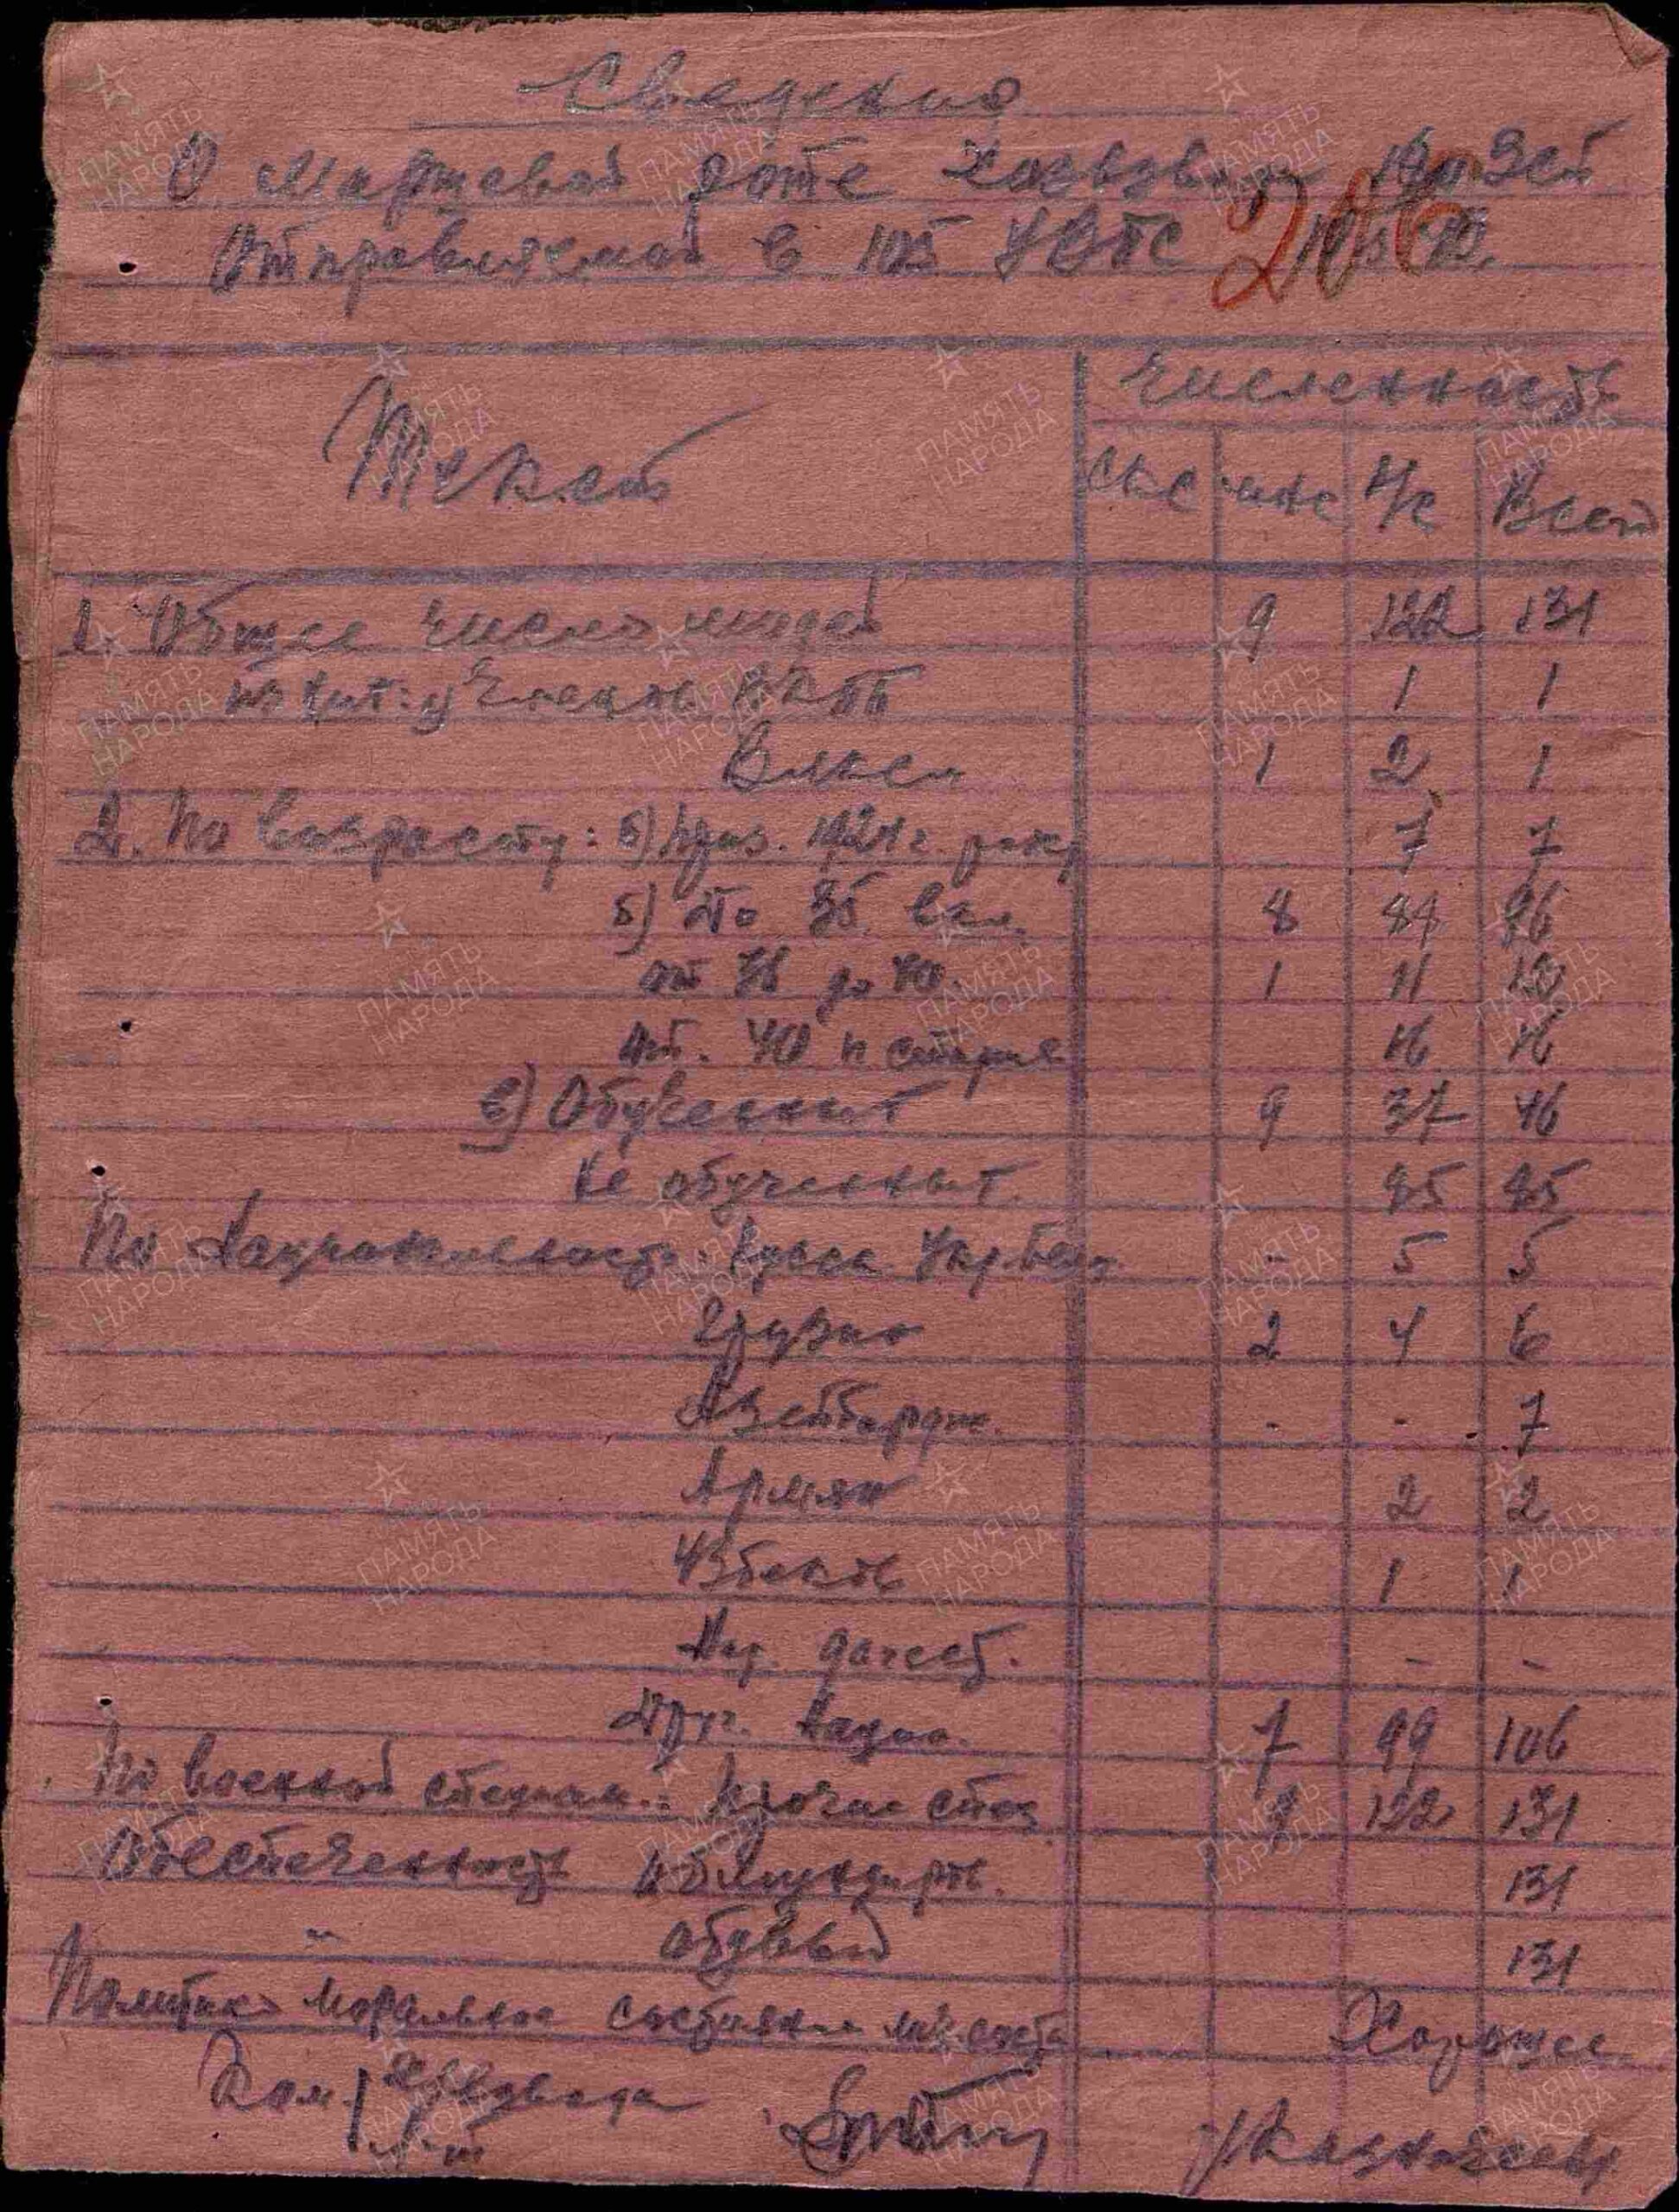 Сведения
О маршевой роте хозвзвода 190 ЗСП
Отправляемой в 105 УВПС
206
Текст
Численность
СКС МНС Р/с Всего
1. Общее число людей 9 122 131
из них: членов ВКПб 1 1
Влксм 1 2 1
2. По возрасту: призв. 1924 г. рожд 7 7
б) До 35 вкл. 8 88 96
от 36 до 40 1 11 12
от. 40 и старше 16 16
в) Обученных 9 37 46
Не обученных 85 85
По Национальность: Русск. Укр. Бел. - 5 5
Грузин 2 4 6
Азербардж. - - 7
Армян 2 2
Узбеков 1 1
Нар. дагест. - -
Друг. нацио. 7 99 106
По военной специал.: прочие спец 9 122 131
Обеспеченность обмундиров. 131
-"- обувью 131
Политико моральное состояние л/состава Хорошее
Ком. хозвзвода
л-т Казначеев